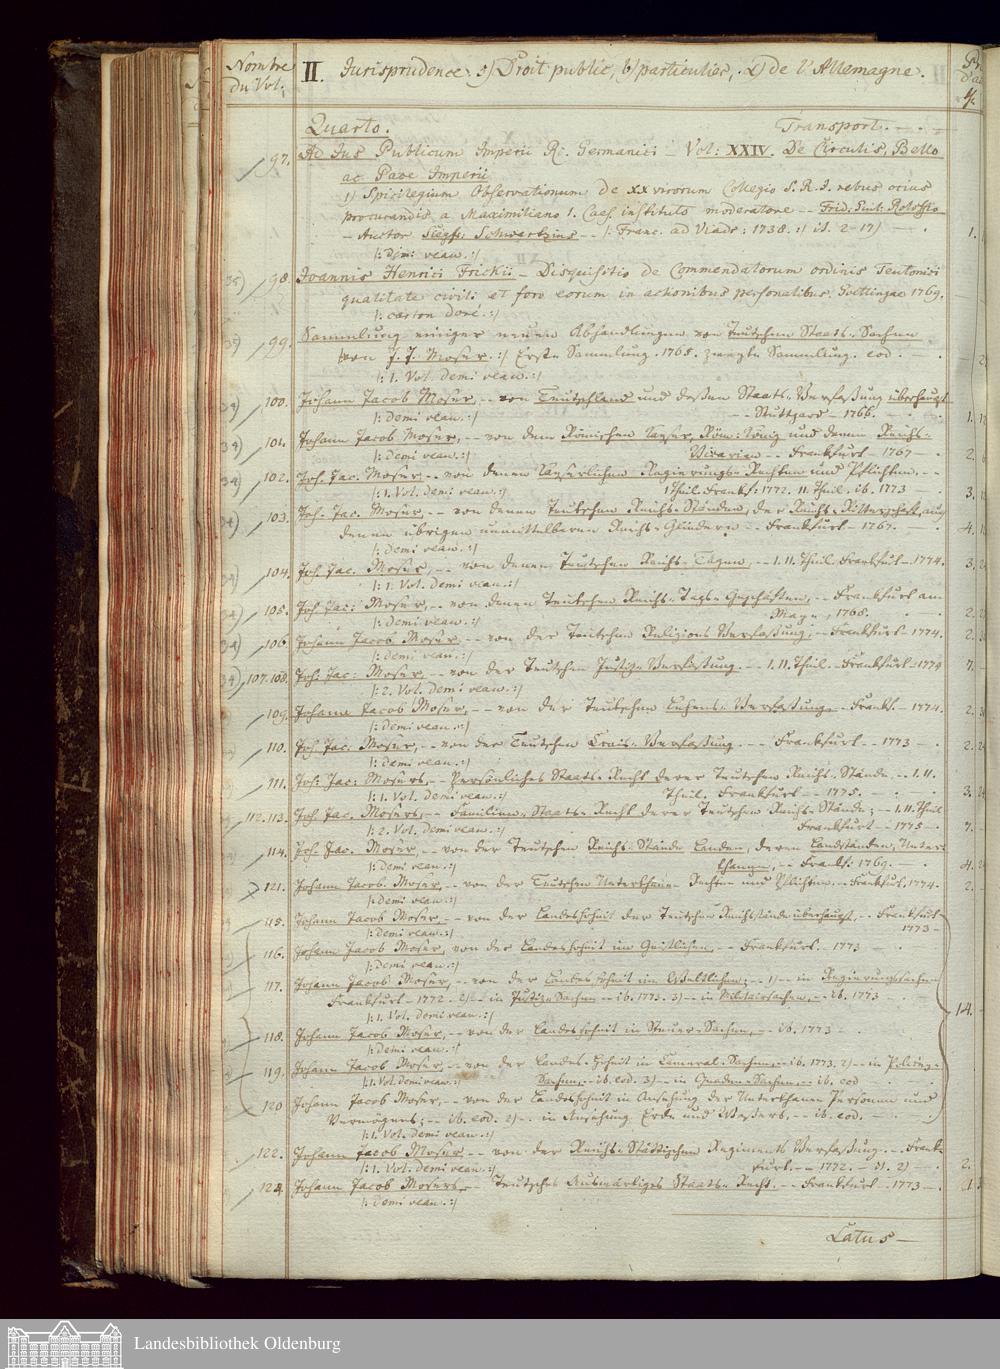 Nombre du Vol.
II. Jurisprudence. 5) Droit public, b) particulier, α) de l'Allemagne.
Quarto.
Transport.
97. Ad Jus Publicum Imperii R. Germanici — Vol: XXIV. De Circulis, Bello
ac Pace Imperii
1) Spicilegium Observationum de XX virorum Collegio S. R. I. rebus ocius
procurandis a Maximiliano I. Caes. instituto moderatore
Auctor Siegfr. Schwartzius — /: Franc. ad Viadr: 1738. :/ it. 2-17)
/: demi veau. :/
1.
98. Joannis Henrici Frickii — Disquisitio de Commendatorum ordinis Teutonici
qualitate civili et foro eorum in actionibus personalibus, Goettingae 1769.
/: carton doré. :/
99. Sammlung einiger neuen Abhandlungen von Teutschen Staats-Sachen
von J. J. Moser. :/ Erste Sammlung. 1765. zweyte Sammlung. eod.
/: 1. Vol. demi veau. :/
100. Johann Jacob Moser, -- von Teutschland und dessen Staats-Verfassung überhaupt
/: demi veau. :/ -- Stuttgard - 1766.
1.
101. Johann Jacob Moser, -- von dem Römischen Kayser, Röm: König und denen Reichs-
/: demi veau. :/ Vicarien -- Frankfurt - 1767
2.
102. Joh. Jac. Moser -- von denen Kayserlichen Regierungs-Rechten und Pflichten.
/: 1. Vol. demi veau. :/ 1 Theil. Frankf: 1772. 11. Theil. ib. 1773
3.
103. Joh. Jac. Moser, -- von denen Teutschen Reichs-Ständen, der Reichs-Ritterschafft, auch
denen übrigen unmittelbaren Reichs-Gliedern -- Frankfurt - 1767.
/: demi veau. :/
4.
104. Joh. Jac. Moser, -- von denen Teutschen Reichs-Tägen, -- 1. 11. Theil. Frankfurt - 1774.
/: 1. Vol. demi veau. :/
3.
105. Joh. Jac: Moser, -- von denen Teutschen Reichs-Tags-Geschäften, -- Frankfurt am
/: demi veau. :/ Mayn, 1768.
2.
106. Johann Jacob Moser -- von der Teutschen Religions Verfassung, -- Frankfurt - 1774.
/: demi veau. :/
2.
107. 108. Joh. Jac: Moser, -- von der Teutschen Justiz-Verfassung. -- 1. 11. Theil. - Frankfurt - 1774
/: 2. Vol. demi veau. :/
7.
109. Johann Jacob Moser, -- von der Teutschen Lehens-Verfassung. - Frankf. - 1774.
/: demi veau. :/
2.
110. Joh. Jac. Moser, -- von der Teutschen Crais-Verfassung. -- Frankfurt -- 1773
/: demi veau. :/
2.
111. Joh: Jac: Mosers, -- Persönliches Staats-Recht derer Teutschen Reichs-Stände -- 1. 11.
/: 1. Vol. demi veau. :/ Theil. Frankfurt -- 1775.
3.
112. 113. Joh. Jac. Mosers, -- Familien-Staats-Recht derer Teutschen Reichs-Stände; -- 1. 11. Theil
/: 2. Vol. demi veau. :/ Frankfurt - 1775
7.
114. Joh. Jac. Moser, -- von der Teutschen Reichs-Stände Landen, deren Landständen, Unter-
/: demi veau. :/ thanen, -- Frankf: 1769.
4.
121. Johann Jacob. Moser, -- von der Teutschen Unterthanen Rechten und Pflichten. -- Frankfurt, 1774.
/: demi veau. :/
2.
115. Johann Jacob Moser, -- von der Landeshoheit der Teutschen Reichsstände überhaupt, -- Frankfurt
/: demi veau. :/ 1773
116. Johann Jacob Moser, von der Landeshoheit im Geistlichen, -- Frankfurt. - 1773
/: demi veau. :/
117. Johann Jacob Moser, -- von der Landeshoheit im Weltlichen, -- 1) -- in Regierungssachen
Frankfurt - 1772. 2) -- in Justiz-Sachen -- ib. 1773. 3) -- in Militairsachen, -- ib. 1773
/: 1. Vol. demi veau. :/
14.
118. Johann Jacob Moser, -- von der Landeshoheit in Steuer-Sachen, -- ib. 1773
/: demi veau. :/
119. Johann Jacob Moser, -- von der Landes-Hoheit in Cameral-Sachen, -- ib. 1773. 2) -- in Policey-
/: 1. Vol. demi veau. :/ Sachen, -- ib. eod. 3) -- in Gnaden-Sachen, -- ib. eod
120 Johann Jacob Moser, -- von der Landeshoheit in Ansehung der Unterthanen Personen und
Vermögens; -- ib. eod. 2) -- in Ansehung Erde und Wassers, -- ib. eod.
/: 1. Vol. demi veau. :/
122. Johann Jacob Moser -- von der Reichs-Stättischen Regiments Verfassung. -- Frank-
/: 1. Vol. demi veau. :/ furt. -- 1772.
2.
Johann Jacob Mosers, -- Teutsches Auswärtiges Staats-Recht. -- Frankfurt - 1773
/: demi veau. :/
1.
Latus
Landesbibliothek Oldenburg